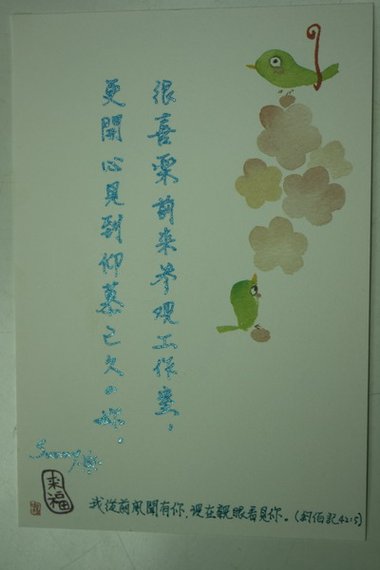 很喜樂前來參观工作室，
更開心見到仰慕已久の妳。
Sunny
来福
我從前風聞有你，現在親眼看見你。（約伯記42:5）